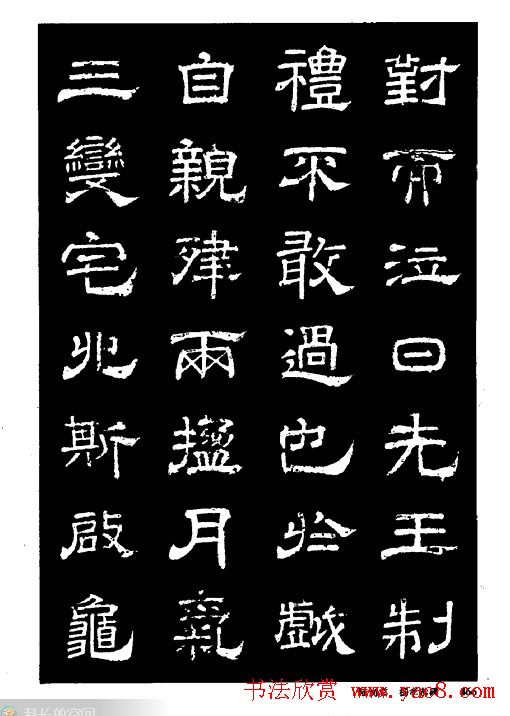 對而泣曰先王制
禮不敢過也於戲
自親肂兩楹月
三變宅兆斯啟龜
书法欣赏 www.yac8.com
科长的空间